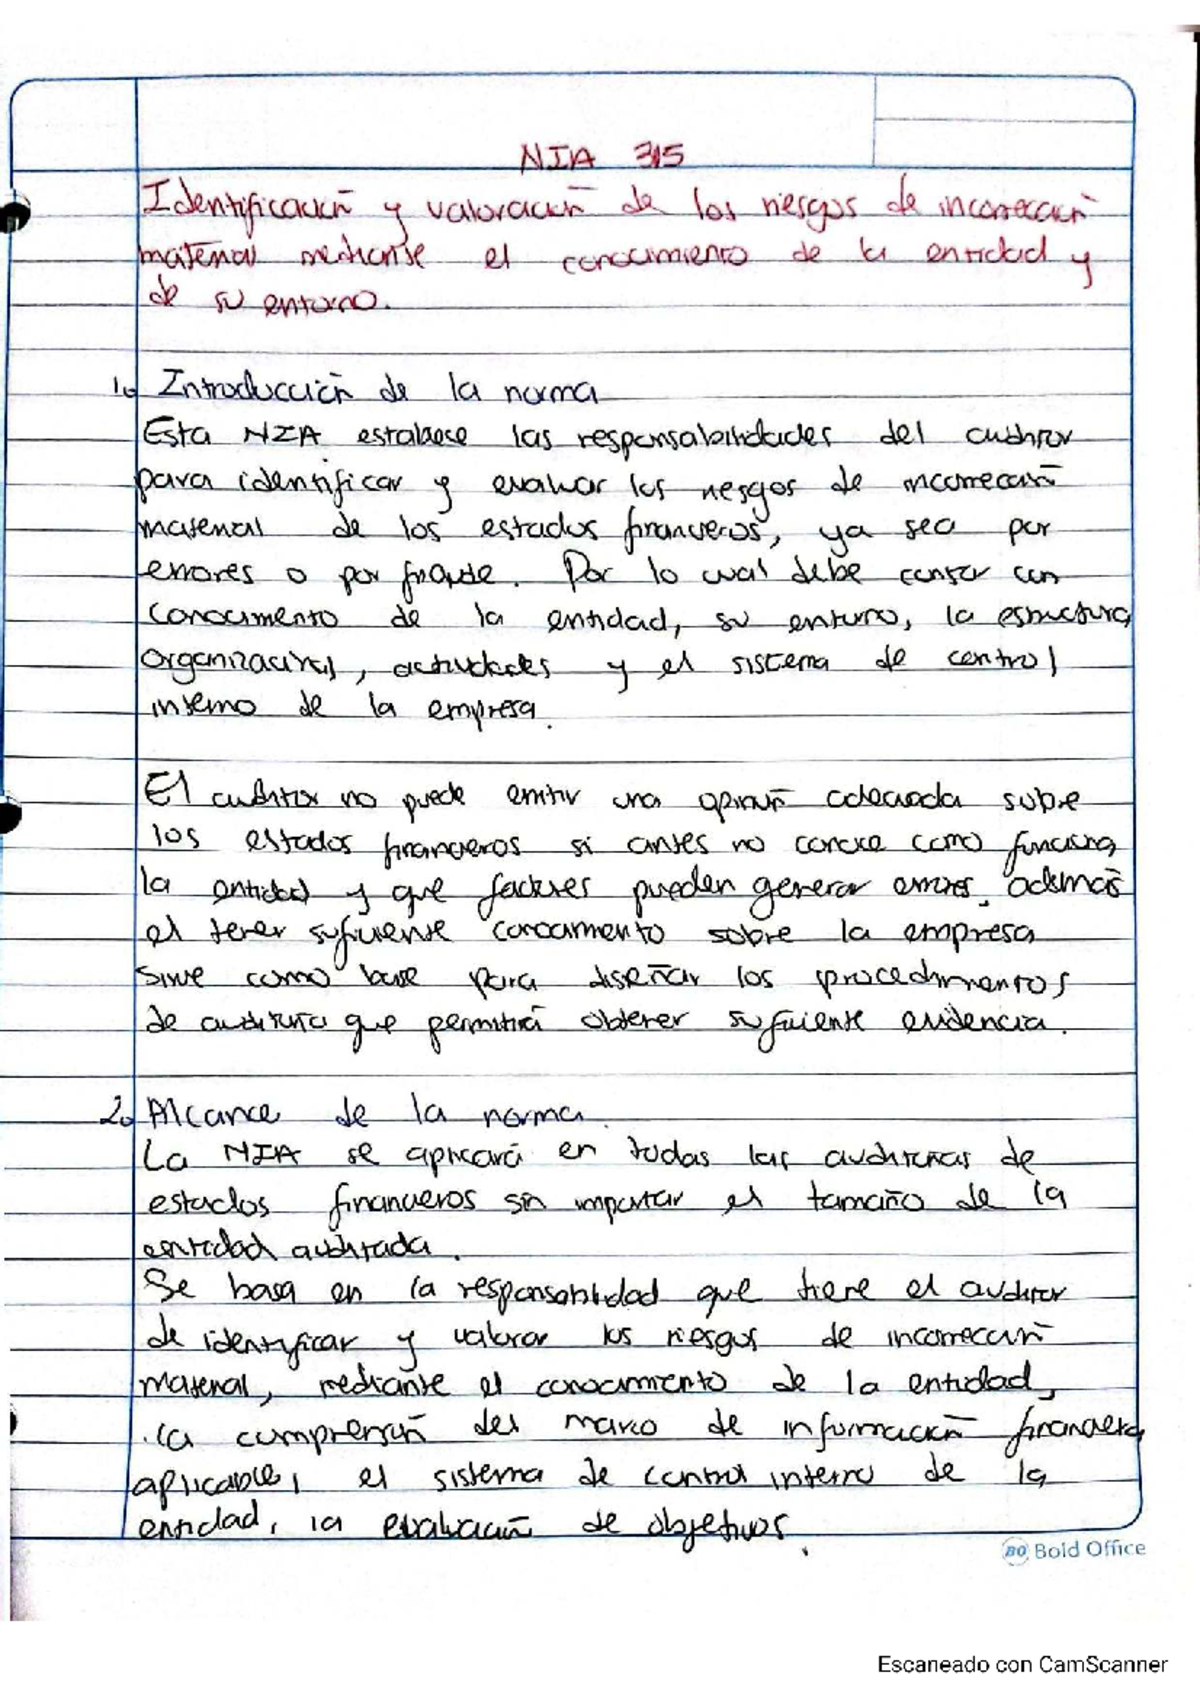 NIA 315
Identificación y valoración de los riesgos de incorrección
material mediante el conocimiento de la entidad y
de su entorno.
1. Introducción de la norma
Esta NIA establece las responsabilidades del auditor
para identificar y evaluar los riesgos de incorrección
material de los estados financieros, ya sea por
errores o por fraude. Por lo cual debe contar con
conocimiento de la entidad, su entorno, la estructura
organizacional, actividades y el sistema de control
interno de la empresa.
El auditor no puede emitir una opinión adecuada sobre
los estados financieros si antes no conoce como funciona
la entidad y que factores pueden generar errores, además
el tener suficiente conocimiento sobre la empresa
sirve como base para diseñar los procedimientos
de auditoria que permitirá obtener suficiente evidencia.
2. Alcance de la norma.
La NIA se aplicará en todas las auditorias de
estados financieros sin importar el tamaño de la
entidad auditada.
Se basa en la responsabilidad que tiene el auditor
de identificar y valorar los riesgos de incorrección
material, mediante el conocimiento de la entidad,
la comprensión del marco de información financiera
aplicable, el sistema de control interno de la
entidad, la evaluación de objetivos.
BO Bold Office
Escaneado con CamScanner